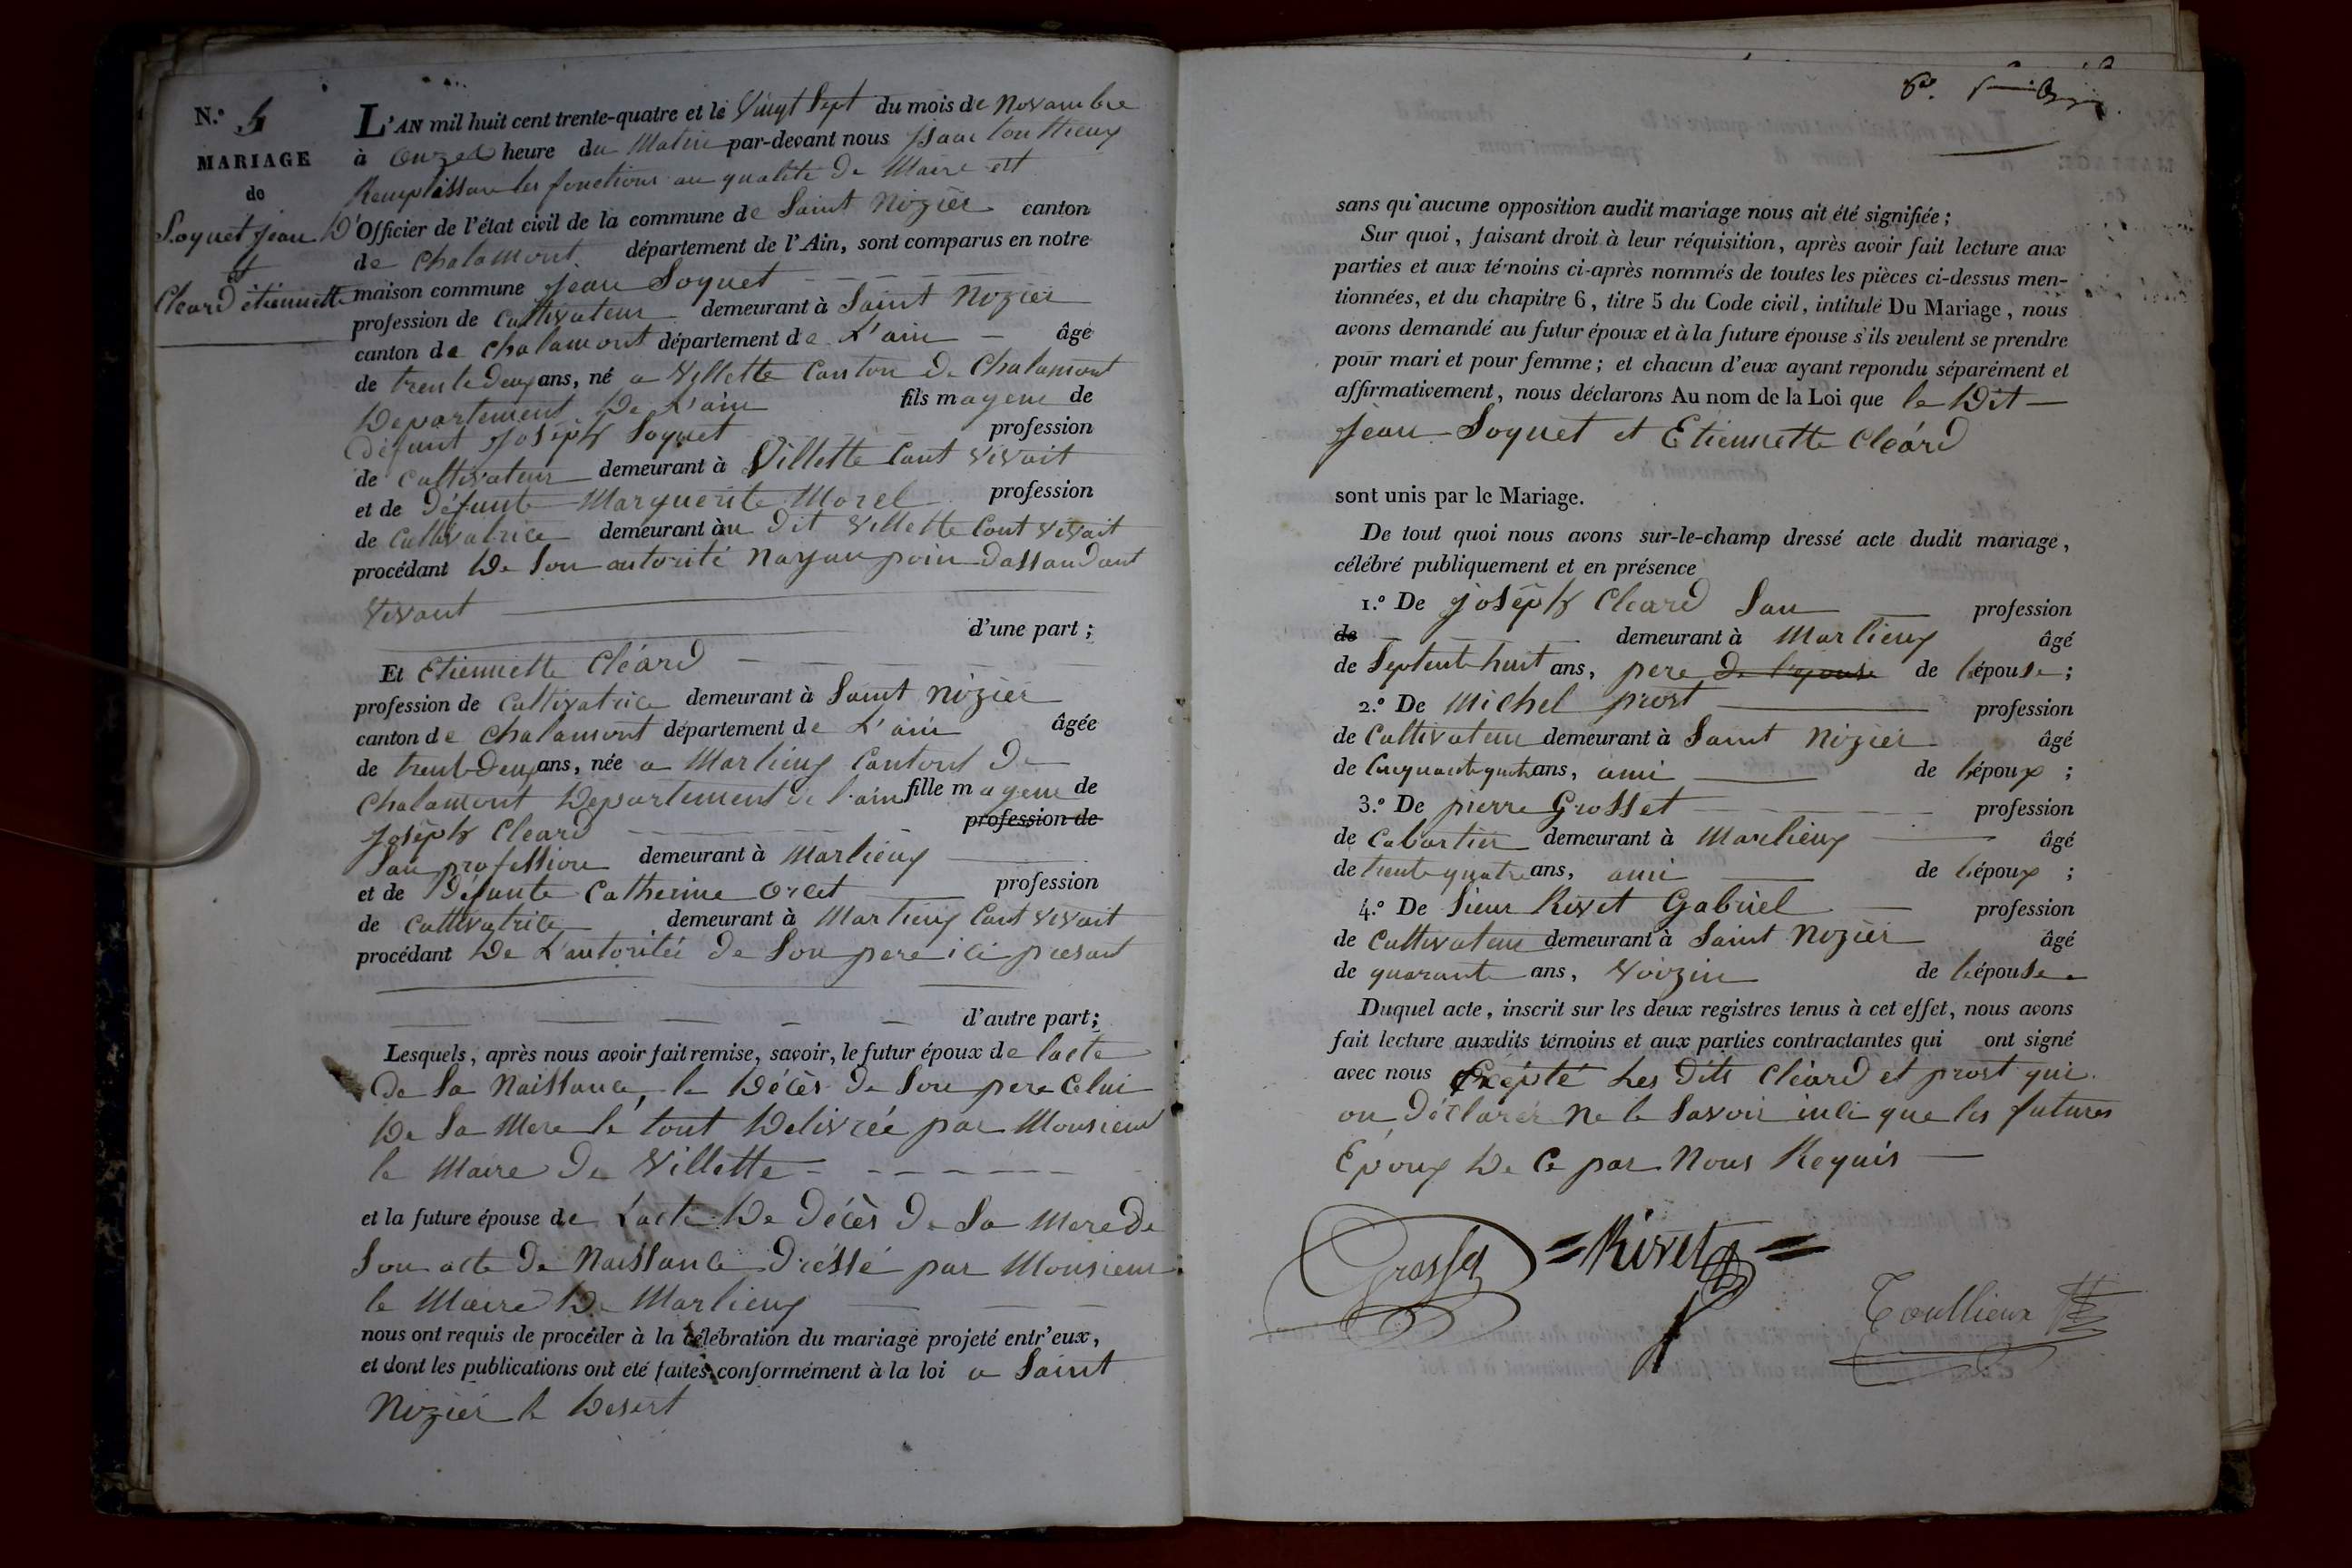 N.º 4
MARIAGE
de
Soquet jean
et
Cleard étiennette
L'AN mil huit cent trente-quatre et le Vingt Sept du mois de Novambre
à onzes heure du Matin par-devant nous isaac toullieux
Remplissan les fonctions au qualité de Maire est
D'Officier de l'état civil de la commune de Saint Nizier canton
de Chalamont département de l'Ain, sont comparus en notre
maison commune jean Soquet
profession de Cultivateur demeurant à Saint Nizier
canton de Chalamont département de L'ain âgé
de trente deux ans, né a Villette Canton De Chalamont
Departement De L'ain fils mageur de
Défunt Joseph Soquet profession
de Cultivateur demeurant à Villette Cant vivait
et de Défunte Marguerite Morel profession
de Cultivatrice demeurant àu Dit Villette Cant vivait
procédant De Son autorité Nayan poin Dassandant
Vivant
d'une part ;
Et Etiennette Cléard
profession de Cultivatrice demeurant à Saint Nizier
canton de Chalamont département de L'ain âgée
de trente Deux ans, née a Marlieux Canton De
Chalamont Departement de l'ain fille mageure de
Joseph Cleard profession de
San profession demeurant à Marlieux
et de Défunte Catherine Orcet profession
de Cultivatrice demeurant à Marlieux Cant vivait
procédant De L'autoritée de Son pere ici presant
d'autre part;
Lesquels, après nous avoir fait remise, savoir, le futur époux de lacte
De Sa Naissance, le Décès De Son pere Celui
De Sa Mere le tout Delivrée par Monsieur
le Maire De Villette
et la future épouse de L'acte De Décès De Sa Mere De
Son acte De Naissance Dréssé par Monsieur
le Maire De Marlieux
nous ont requis de procéder à la célébration du mariage projeté entr'eux,
et dont les publications ont été faites conformément à la loi a Saint
Nizier le Desert
sans qu'aucune opposition audit mariage nous ait été signifiée ;
Sur quoi, faisant droit à leur réquisition, après avoir fait lecture aux
parties et aux témoins ci-après nommés de toutes les pièces ci-dessus men-
tionnées, et du chapitre 6, titre 5 du Code civil, intitulé Du Mariage, nous
avons demandé au futur époux et à la future épouse s'ils veulent se prendre
pour mari et pour femme ; et chacun d'eux ayant repondu séparément et
affirmativement, nous déclarons Au nom de la Loi que le Dit
Jean Soquet et Etiennette Cleard
sont unis par le Mariage.
De tout quoi nous avons sur-le-champ dressé acte dudit mariage,
célébré publiquement et en présence
1.º De Joseph Cleard San profession
de demeurant à Marlieux âgé
de Septente huit ans, pere De l'epouse de lépouse ;
2.º De Michel prost profession
de Cultivateur demeurant à Saint Nizier âgé
de Cinquante quatre ans, ami de lépoux ;
3.º De pierre Grosset profession
de Cabartier demeurant à Marlieux âgé
de trente quatre ans, ami de lépoux ;
4.º De Sieur Rivet Gabriel profession
de Cultivateur demeurant à Saint Nizier âgé
de quarante ans, Voizin de lépouse
Duquel acte, inscrit sur les deux registres tenus à cet effet, nous avons
fait lecture auxdits témoins et aux parties contractantes qui ont signé
avec nous Excepté Les Dits Cléard et prost qui
on Déclarer Ne le Savoir inci que les futures
Epoux De Ce par Nous Requis
Grosset Rivet
Toullieux